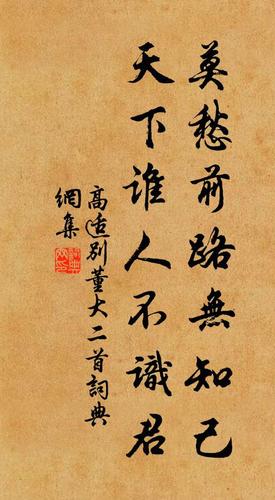 莫愁前路無知己
天下誰人不識君
高适別董大二首詞典
網集